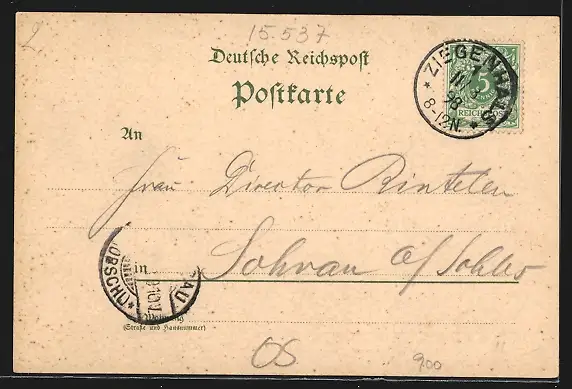 2
15.537
Deutsche Reichspost
Postkarte
ZIEGENHALS
98
8-12N.
5
PFENNIG
REICHSPOST
An
Frau Director Rintelen
in Sohrau O/Schles
Wohnung
(Straße und Hausnummer)
OS
9,00